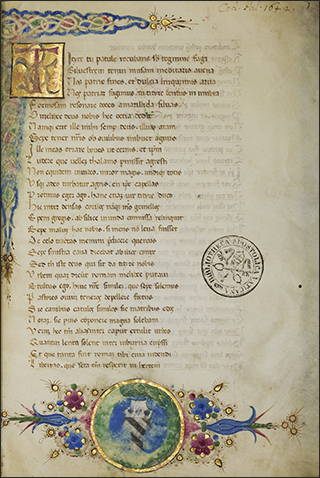 Tityre tu patule recubans sub tegmine fagi
Silvestrem tenui musam meditaris avena
Nos patrie fines et dulcia linquimus arva
Nos patriam fugimus tu titire lentus in umbra
Formosam resonare doces amarillida silvas
O melibee deus nobis hec ocia fecit
Namque erit ille mihi semper deus, illius aram
Sepe tener nostris ab ovilibus imbuet agnus
Ille meas errare boves ut cernis et ipsum
Ludere que vellem calamo permisit agresti
Non equidem invideo, miror magis, undique totis
Usque adeo turbatur agris, en ipse capellas
Protinus eger ago, hanc etiam vix titire duco
Hic inter densas corilos modo namque gemellos
Spem gregis, ah silice in nuda connixa reliquit
Sepe malum hoc nobis, si mens non leva fuisset
De celo tactas memini predicere quercus
Sepe sinistra cava dicebat ab ilice cornix
Sed tamen iste deus qui sit da titire nobis
Urbem quam dicunt romam melibee putavi
Stultus ego, huic nostre similem, quo sepe solemus
Pastores ovium teneros depellere fetus
Sic canibus catulos similes sic matribus edos
Noram, sic parvis componere magna solebam
Verum hec tantum alias inter caput extulit urbes
Quantum lenta solent inter viburna cupressi
Et que tanta fuit romam tibi causa videndi
Libertas, que sera tamen respexit inertem
BIBLIOTHECA APOSTOLICA VATICANA